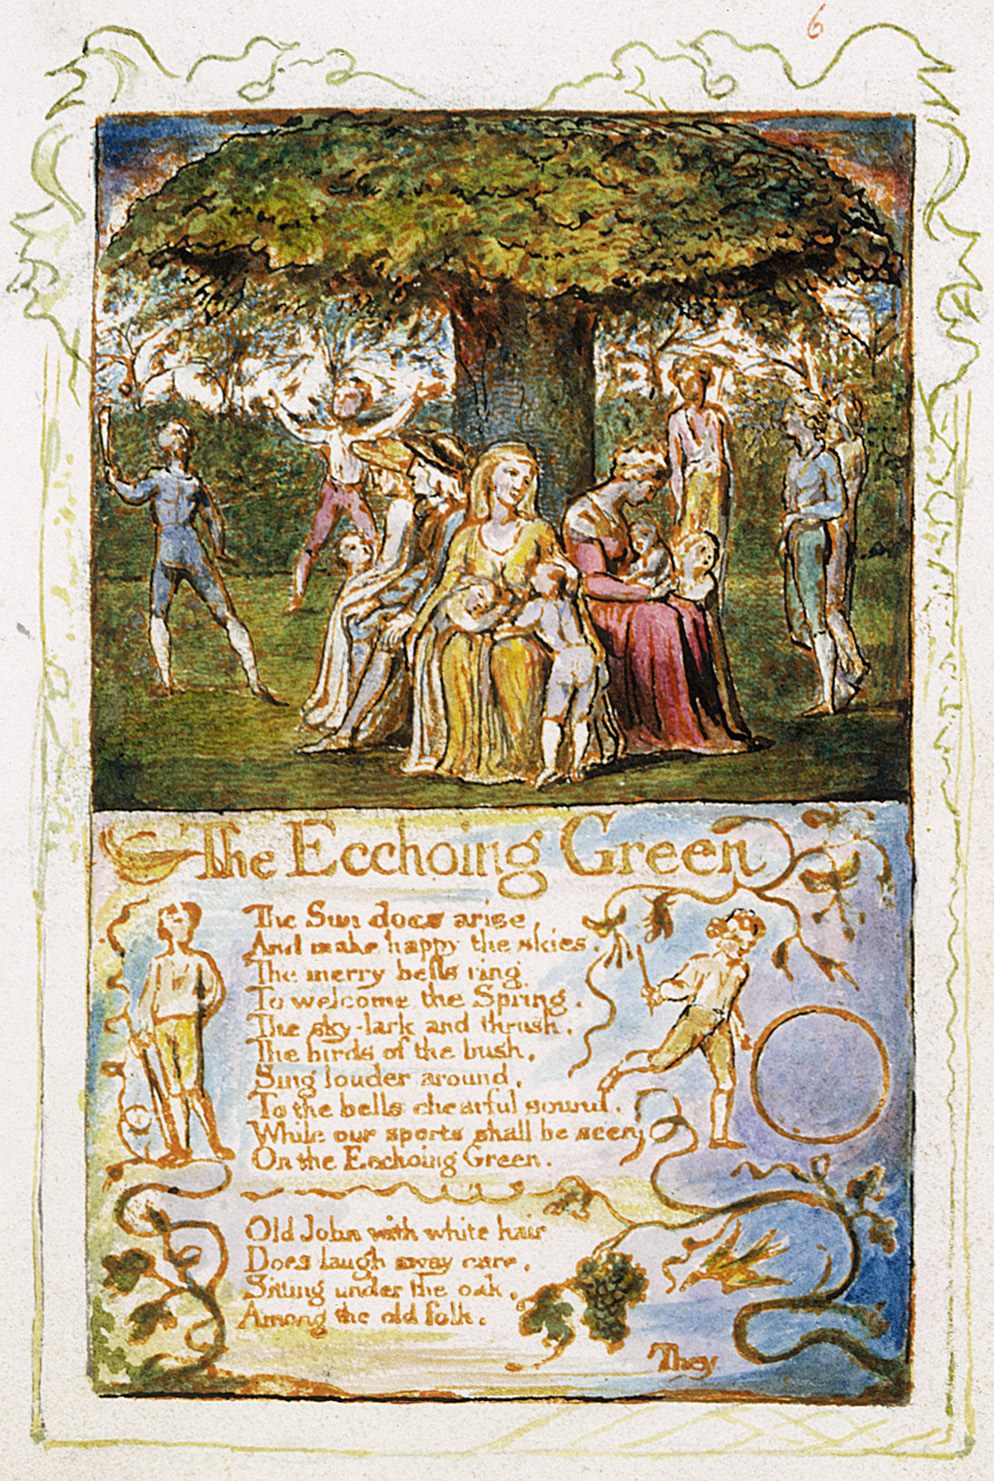 6
The Ecchoing Green
The Sun does arise,
And make happy the skies.
The merry bells ring,
To welcome the Spring.
The sky-lark and thrush,
The birds of the bush,
Sing louder around,
To the bells chearful sound,
While our sports shall be seen
On the Ecchoing Green.
Old John with white hair
Does laugh away care,
Sitting under the oak,
Among the old folk.
They